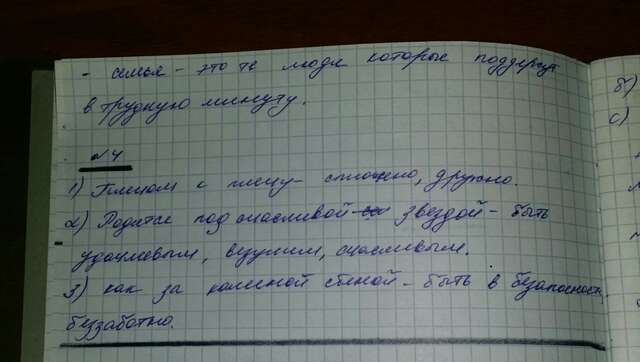 - семья - это те люди которые поддержут
в трудную минуту.
№4
1) Плечом к плечу - сплочено, дружно.
2) Родится под счастливой звездой - быть
удачливым, везучим, счастливым.
3) как за каменной стеной - быть в безопасности
беззаботно.
б)
с)